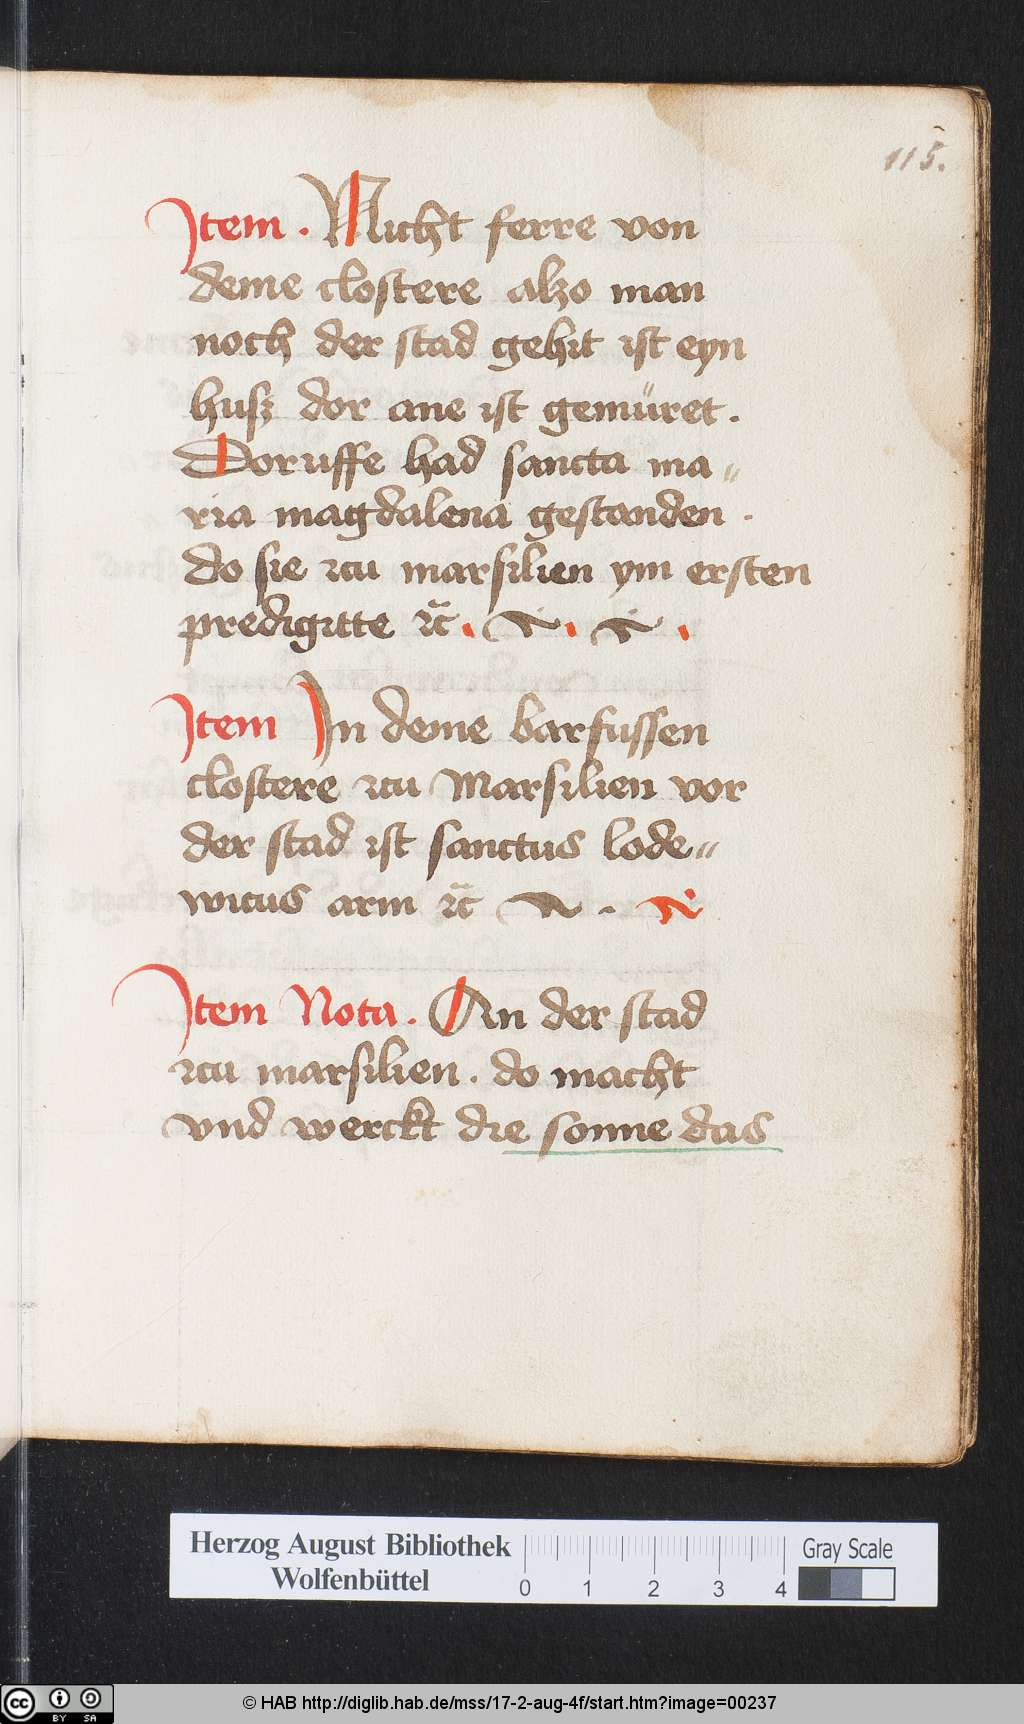 115.
Item . Nicht ferre von
deme clostere alzo man
noch der stad gehit ist eyn
husz dor ane ist gemüret .
Doruffe had sancta ma„
ria magdalena gestanden .
do sie zcu marsilien ym ersten
predigitte ꝛc̃ .
Item In deme barfussen
clostere zcu Marsilien vor
der stad ist sanctus lode„
wicus arm ꝛc̃ .
Item Nota . An der stad
zcu marsilien . do macht
vnd werckt die sonne das
Herzog August Bibliothek
Wolfenbüttel
0 1 2 3 4
Gray Scale
cc BY SA
© HAB http://diglib.hab.de/mss/17-2-aug-4f/start.htm?image=00237